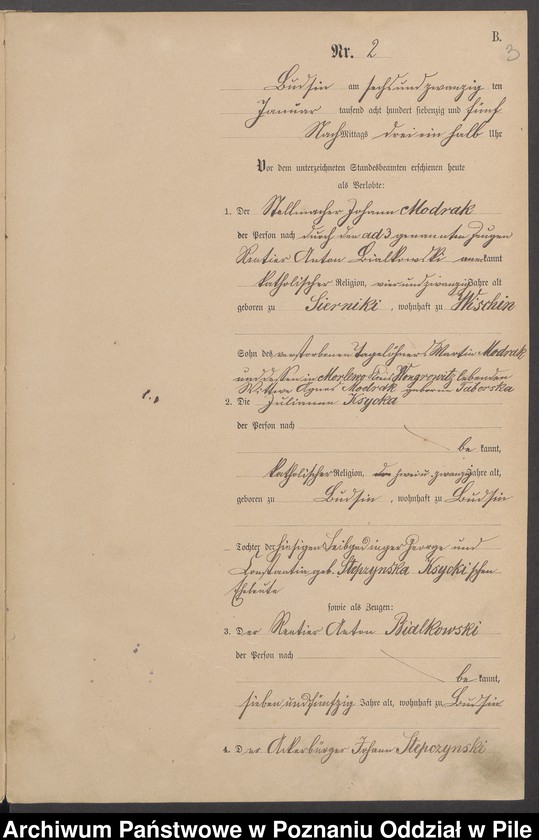 B.
3
Nr. 2
Budsin am sechsundzwanzig ten
Januar tausend acht hundert siebenzig und fünf
NachMittags drei ein halb Uhr
Vor dem unterzeichneten Standesbeamten erschienen heute
als Verlobte:
1. Der Stellmacher Johann Modrak
der Person nach durch den ad 3 genannten Zeugen
Rentier Anton Bialkowski anerkannt
katholischer Religion, vierundzwanzig Jahre alt
geboren zu Sierniki, wohnhaft zu Wischin
Sohn des verstorbenen Tagelöhners Martin Modrak
und dessen in Morkewo Kreis Wongrowitz lebenden
Wittwe Agnes Modrak geborene Taborska
2. Die Julianna Ksycka
der Person nach
be kannt,
katholischer Religion, zwei u. zwanzig Jahre alt,
geboren zu Budsin, wohnhaft zu Budsin
Tochter der hiesigen Leibgedinger George und
Constantia geb. Stepzynska Ksycki'schen
Eheleute
sowie als Zeugen:
3. Der Rentier Anton Bialkowski
der Person nach
be kannt,
sieben und fünfzig Jahre alt, wohnhaft zu Budsin
4. Der Ackerbürger Johann Stepczynski
Archiwum Państwowe w Poznaniu Oddział w Pile